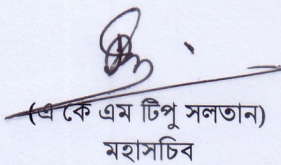 (এ কে এম টিপু সলতান)
মহাসচিব